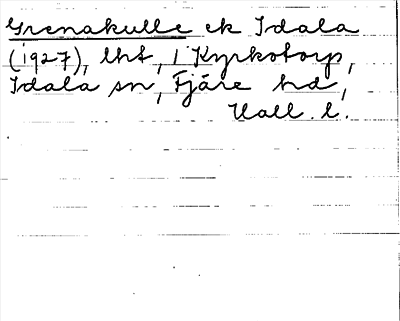 Grenakulle ek Idala
(1927), lht, i Kyrkotorp,
Idala sn, Fjäre hd,
Hall. l.